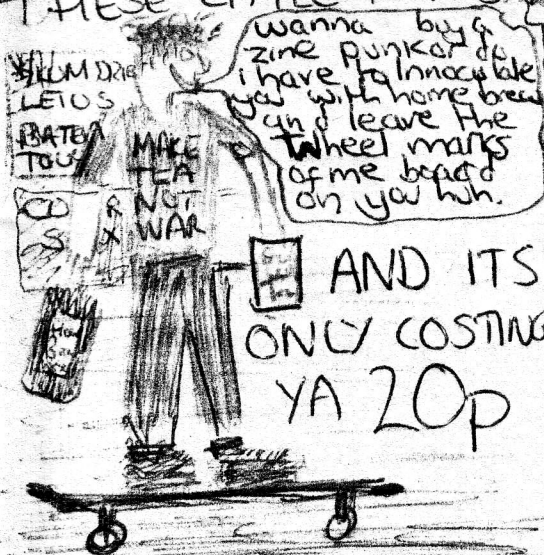 THESE LITTLE
wanna buy a
zine punk or do
i have to Innoculate
you with home brew
and leave the
wheel marks
of me board
on you huh.
LETUS
MAKE
TEA
NOT
WAR
AND ITS
ONLY COSTING
YA 20p